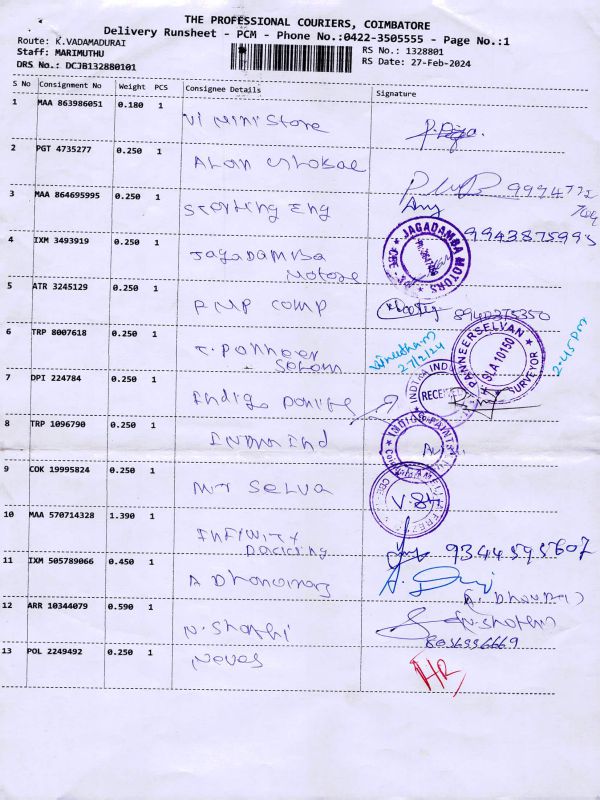 THE PROFESSIONAL COURIERS, COIMBATORE
Delivery Runsheet - PCM - Phone No.:0422-3505555 - Page No.:1
Route: K.VADAMADURAI
RS No.: 1328801
Staff: MARIMUTHU
RS Date: 27-Feb-2024
DRS No.: DCJB132880101
S No Consignment No Weight PCS Consignee Details Signature
1 MAA 863986051 0.180 1
Vi Mini Store
2 PGT 4735277 0.250 1
Global
999477
3 MAA 864695995 0.250 1
Starting Eng
JAGADAMBA MOTORS
4 IXM 3493919 0.250 1
Jagadamba
Motors
5 ATR 3245129 0.250 1
PMP comp
8940375350
6 TRP 8007618 0.250 1
T. Panneer
Selvam
27/2/24
PANNEERSELVAN
SLA 10150
SURVEYOR
2.45 pm
7 DPI 224784 0.250 1
Indigo
RECEIVED
8 TRP 1096790 0.250 1
Indmind
INDIGO PAINT
9 COK 19995824 0.250 1
Mr Selva
10 MAA 570714328 1.390 1
Infinity
Packing
9344595607
11 IXM 505789066 0.450 1
A Dhanvinraj
12 ARR 10344079 0.590 1
N. Shanthi
N. Shanthi
13 POL 2249492 0.250 1
Neves
HR